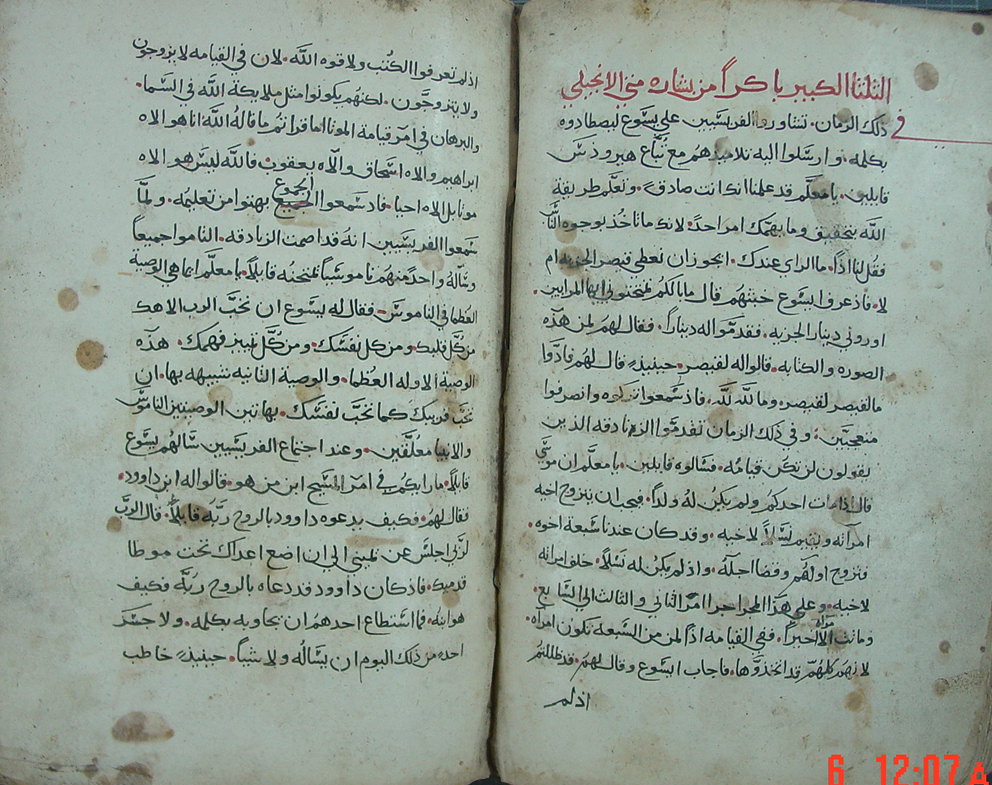 الثلثا الكبير باكراً من بشارة متى الانجيلي
في ذلك الزمان. تشاوروا الفريسيين على يسوع ليصطادوه
بكلمه. وارسلوا اليه تلاميذهم مع تُبَّاع هيرودس
قايلين. يا معلّم قد علمنا انك انت صادق. وتعلّم طريقة
الله بتحقيق وما يهمّك امر احدٍ. لانك ما تاخذ بوجوه الناس
فقل لنا اذاً. ما الراي عندك. ايجوز ان نعطي قيصر الجزيه ام
لا. فاذ عرف ايسوع خبثهم قال ما بالكم تمتحنوني ايها المرايين.
اوروني دينار الجزيه. فقدمّوا له ديناراً. فقال لهم لمن هذه
الصوره والكتابه. قالوا له لقيصر. حينيذٍ قال لهم فادّوا
ما لقيصر لقيصر. وما لله لله. فاذ سمعوا تركوه وانصرفوا
متعجبين. وفي ذلك الزمان تقدمّوا الزنادقه الذين
يقولون لن تكن قيامه. فسالوه قايلين. يا معلّم ان موسى
قال اذا مات احدكم ولم يكن له ولداً. فيجب ان يتزوج اخيه
امرأته ويقيم نسلاً لاخيه. وقد كان عندنا سبعة اخوه
فتزوج اولهم وقضا اجله. واذ لم يكن له نسلاً. خلف امراته
لاخيه. وعلى هذا المجرا جرا امر الثاني والثالث الى السابع.
وماتت الامرأه اخيراً. ففي القيامه اذاً لمن من السبعه تكون امرأه.
لانهم كلهم قد اتخذوها. فاجاب ايسوع وقال لهم. قد ظللتم
اذ لم
اذ لم تعرفوا الكتب ولا قوه الله. لان في القيامه لا يزوجون
ولا يتزوجون. لكنهم يكونوا مثل ملايكة الله في السما.
والبرهان في امر قيامة الموتا اما قراتم ما قاله الله انا هو الاه
ابراهيم والاه اسحاق والاه يعقوب فالله ليس هو الاه
موتا بل الاه احيا. فاذ سمعوا الجموع بهتوا من تعليمه. ولمّا
سمعوا الفريسيين انه قد اصمت الزنادقه. التاموا جميعاً
وساله واحد منهم ناموسياً ممتحنه قايلاً. يا معلّم ايما هي الوصية
العظما في الناموس. فقال له يسوع ان تحبّ الرب الاهك
من كلّ قلبك. ومن كل نفسك. ومن كلّ تمييز فهمك. هذه
الوصية الاوله العظما. والوصية الثانيه شبيهه بها. ان
تحبّ قريبك كما تحبّ نفسك. بهاتين الوصيتين الناموس
والانبيا معلّقين. وعند اجتماع الفريسيين سالهم يسوع
قايلاً. ما رايكم في امر المسيح ابن من هو. قالوا له ابن داوود.
فقال لهم. فكيف يدعوه داوود بالروح ربّه قايلاً. قال الربّ
لربّي اجلس عن يميني الى ان اضع اعداك تحت موطا
قدميك. فاذ كان داوود قد دعاه بالروح ربّه فكيف
هو ابنه. فما استطاع احدهم ان يجاوبه بكلمه. ولا جسر
احد من ذلك اليوم ان يساله ولا شياً. حينيذٍ خاطب
6 12:07 A